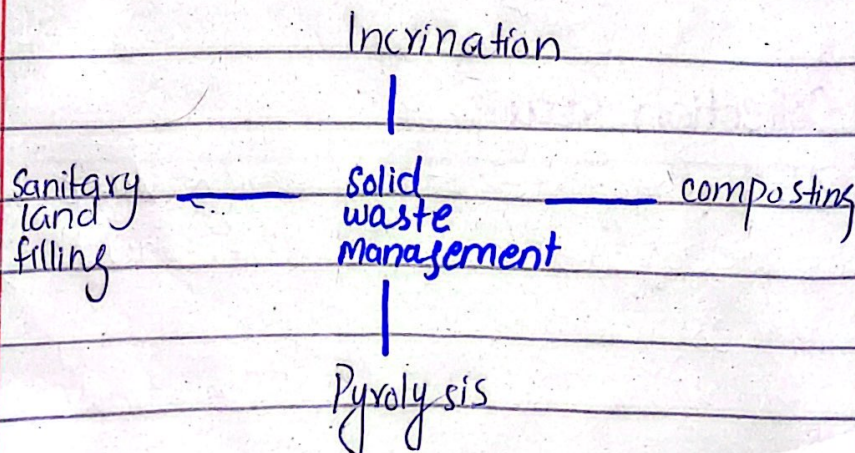 Incrination
Sanitary
land
filling
Solid
waste
Management
composting
Pyrolysis